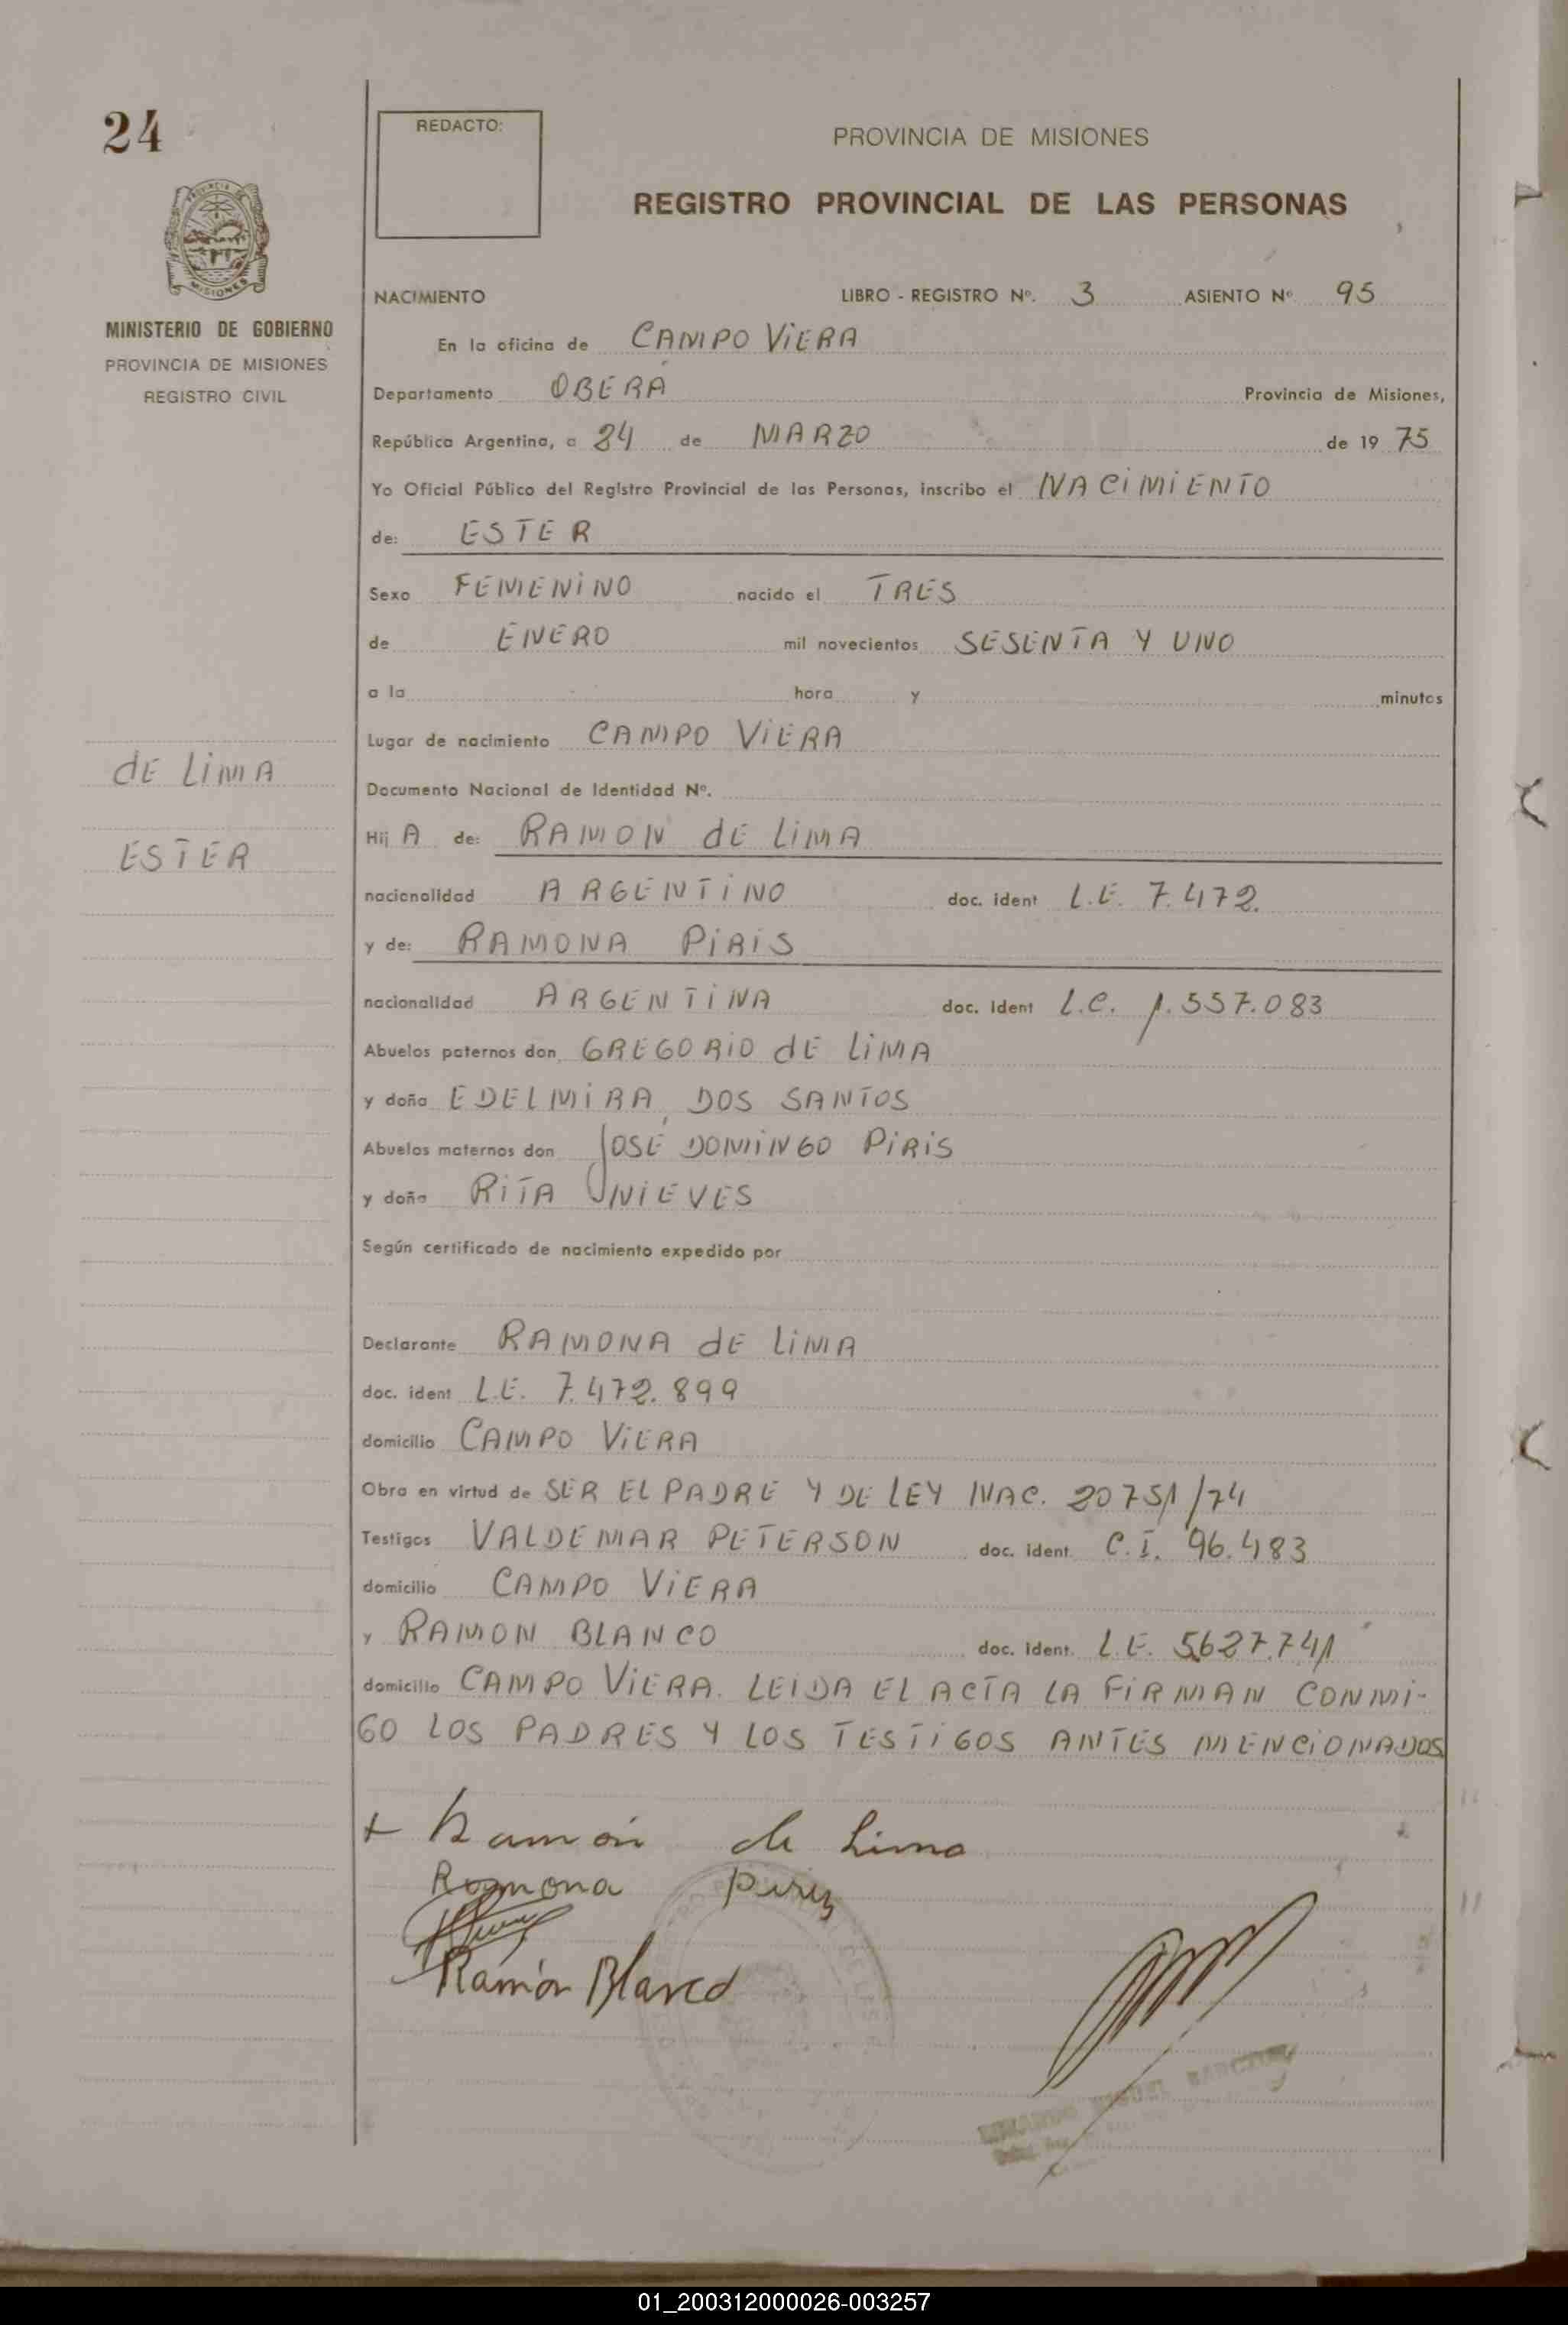 24
REDACTO:
PROVINCIA DE MISIONES
REGISTRO PROVINCIAL DE LAS PERSONAS
MINISTERIO DE GOBIERNO
PROVINCIA DE MISIONES
REGISTRO CIVIL
NACIMIENTO LIBRO - REGISTRO Nº. 3 ASIENTO Nº 95
En la oficina de CAMPO ViERA
Departamento OBERÁ Provincia de Misiones,
República Argentina, a 24 de MARZO de 19 75
Yo Oficial Público del Registro Provincial de las Personas, inscribo el NACiMiENTO
de: ESTER
Sexo FEMENiNO nacido el TRES
de ENERO mil novecientos SESENTA Y UNO
a la hora y minutos
Lugar de nacimiento CAMPO ViERA
Documento Nacional de Identidad Nº.
dE LiMA
ESTER
Hij A de: RAMON dE LiMA
nacionalidad ARGENTiNO doc. ident L.E. 7.472.
y de: RAMONA PiRiS
nacionalidad ARGENTiNA doc. ident L.C. 1.557.083
Abuelos paternos don GREGORiO dE LiMA
y doña EDELMiRA DOS SANTOS
Abuelos maternos don JOSÉ DOMiNGO PiRiS
y doña RiTA NiEVES
Según certificado de nacimiento expedido por
Declarante RAMONA dE LiMA
doc. ident L.E. 7.472.899
domicilio CAMPO ViERA
Obra en virtud de SER EL PADRE Y DE LEY NAC. 20751/74
Testigos VALDEMAR PETERSON doc. ident. C.I. 96.483
domicilio CAMPO ViERA
y RAMON BLANCO doc. ident. L.E. 5.627.741
domicilio CAMPO ViERA. LEIDA EL ACTA LA FiRMAN CONMi-
GO LOS PADRES Y LOS TESTiGOS ANTES MENCiONADOS
+ Ramón de Lima
Ramona Piris
Ramón Blanco
MIGUEL
01_200312000026-003257